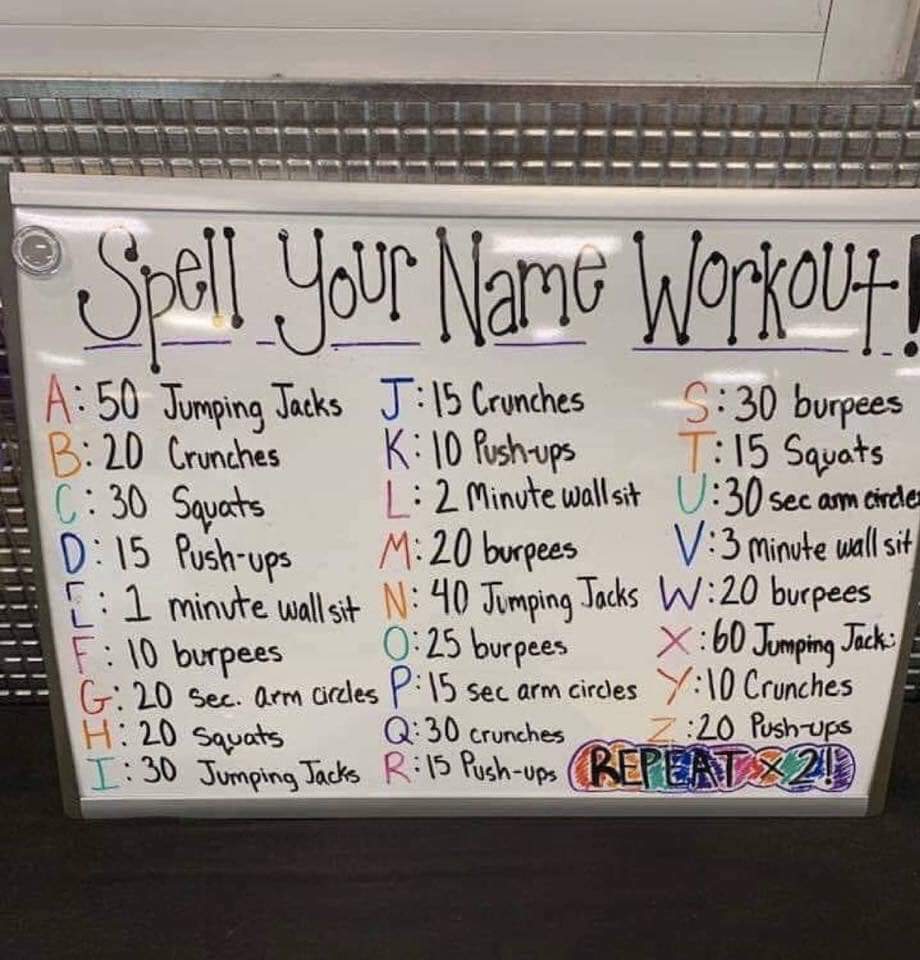 Spell Your Name Workout!
A: 50 Jumping Jacks
B: 20 Crunches
C: 30 Squats
D: 15 Push-ups
E: 1 minute wall sit
F: 10 burpees
G: 20 sec. arm circles
H: 20 squats
I: 30 Jumping Jacks
J: 15 Crunches
K: 10 Push-ups
L: 2 Minute wall sit
M: 20 burpees
N: 40 Jumping Jacks
O: 25 burpees
P: 15 sec arm circles
Q: 30 crunches
R: 15 Push-ups
S: 30 burpees
T: 15 Squats
U: 30 sec arm circle
V: 3 minute wall sit
W: 20 burpees
X: 60 Jumping Jack
Y: 10 Crunches
Z: 20 Push-ups
REPEAT x 2!